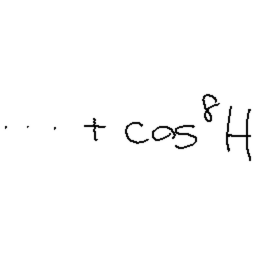 ··· + cos⁸H